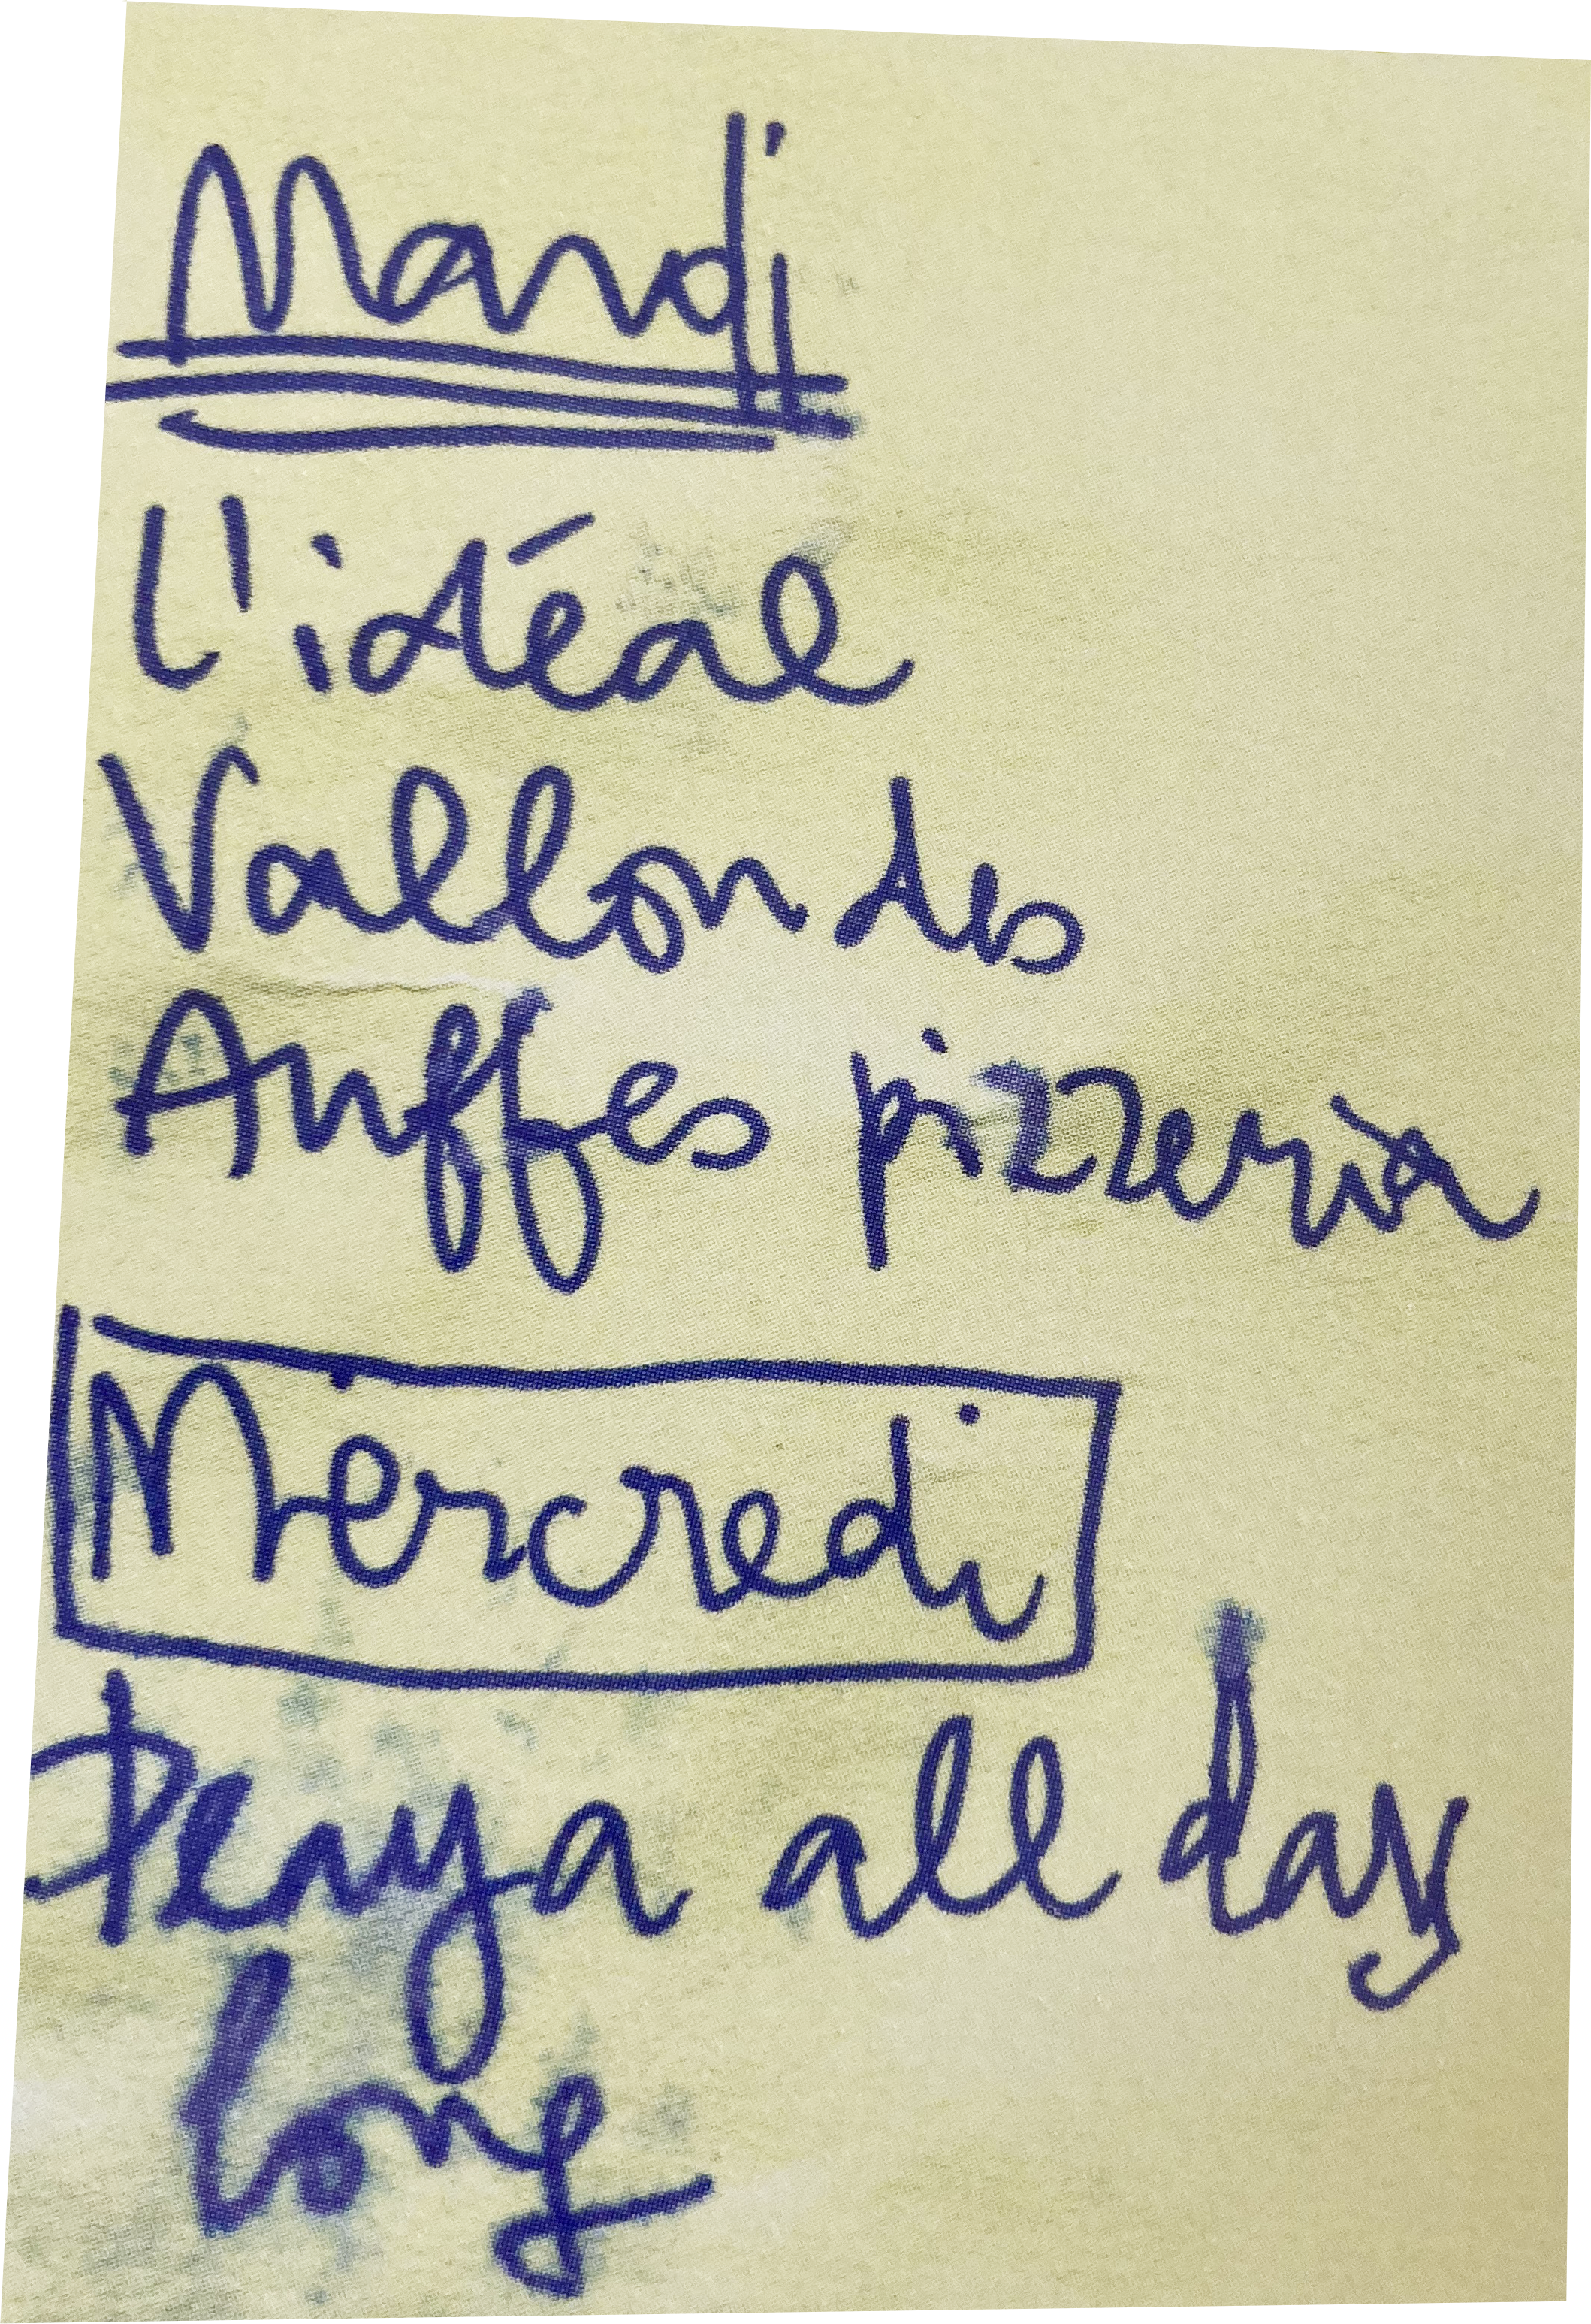 Mardi
L'idéal
Vallon des
Auffes pizzeria
Mercredi
Penya all day
long